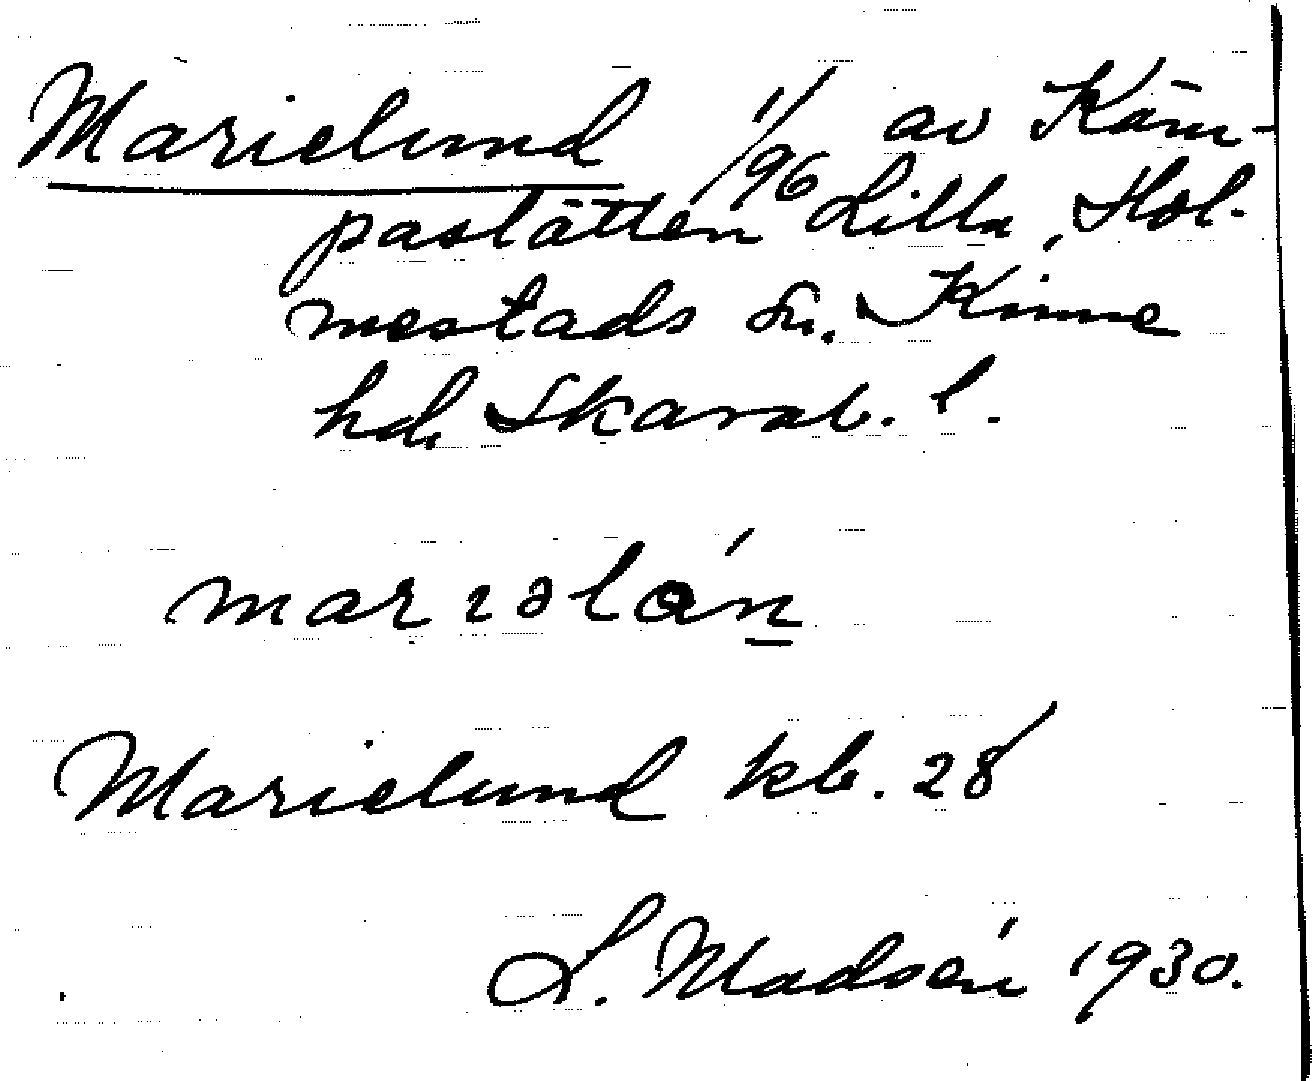 Marielund 1/96 av Käm-
pastätten Lilla, Hol-
mestads sn. Kinne
hd. Skarab. l.
marıəlán
Marielund kb. 28
L. Madsén 1930.